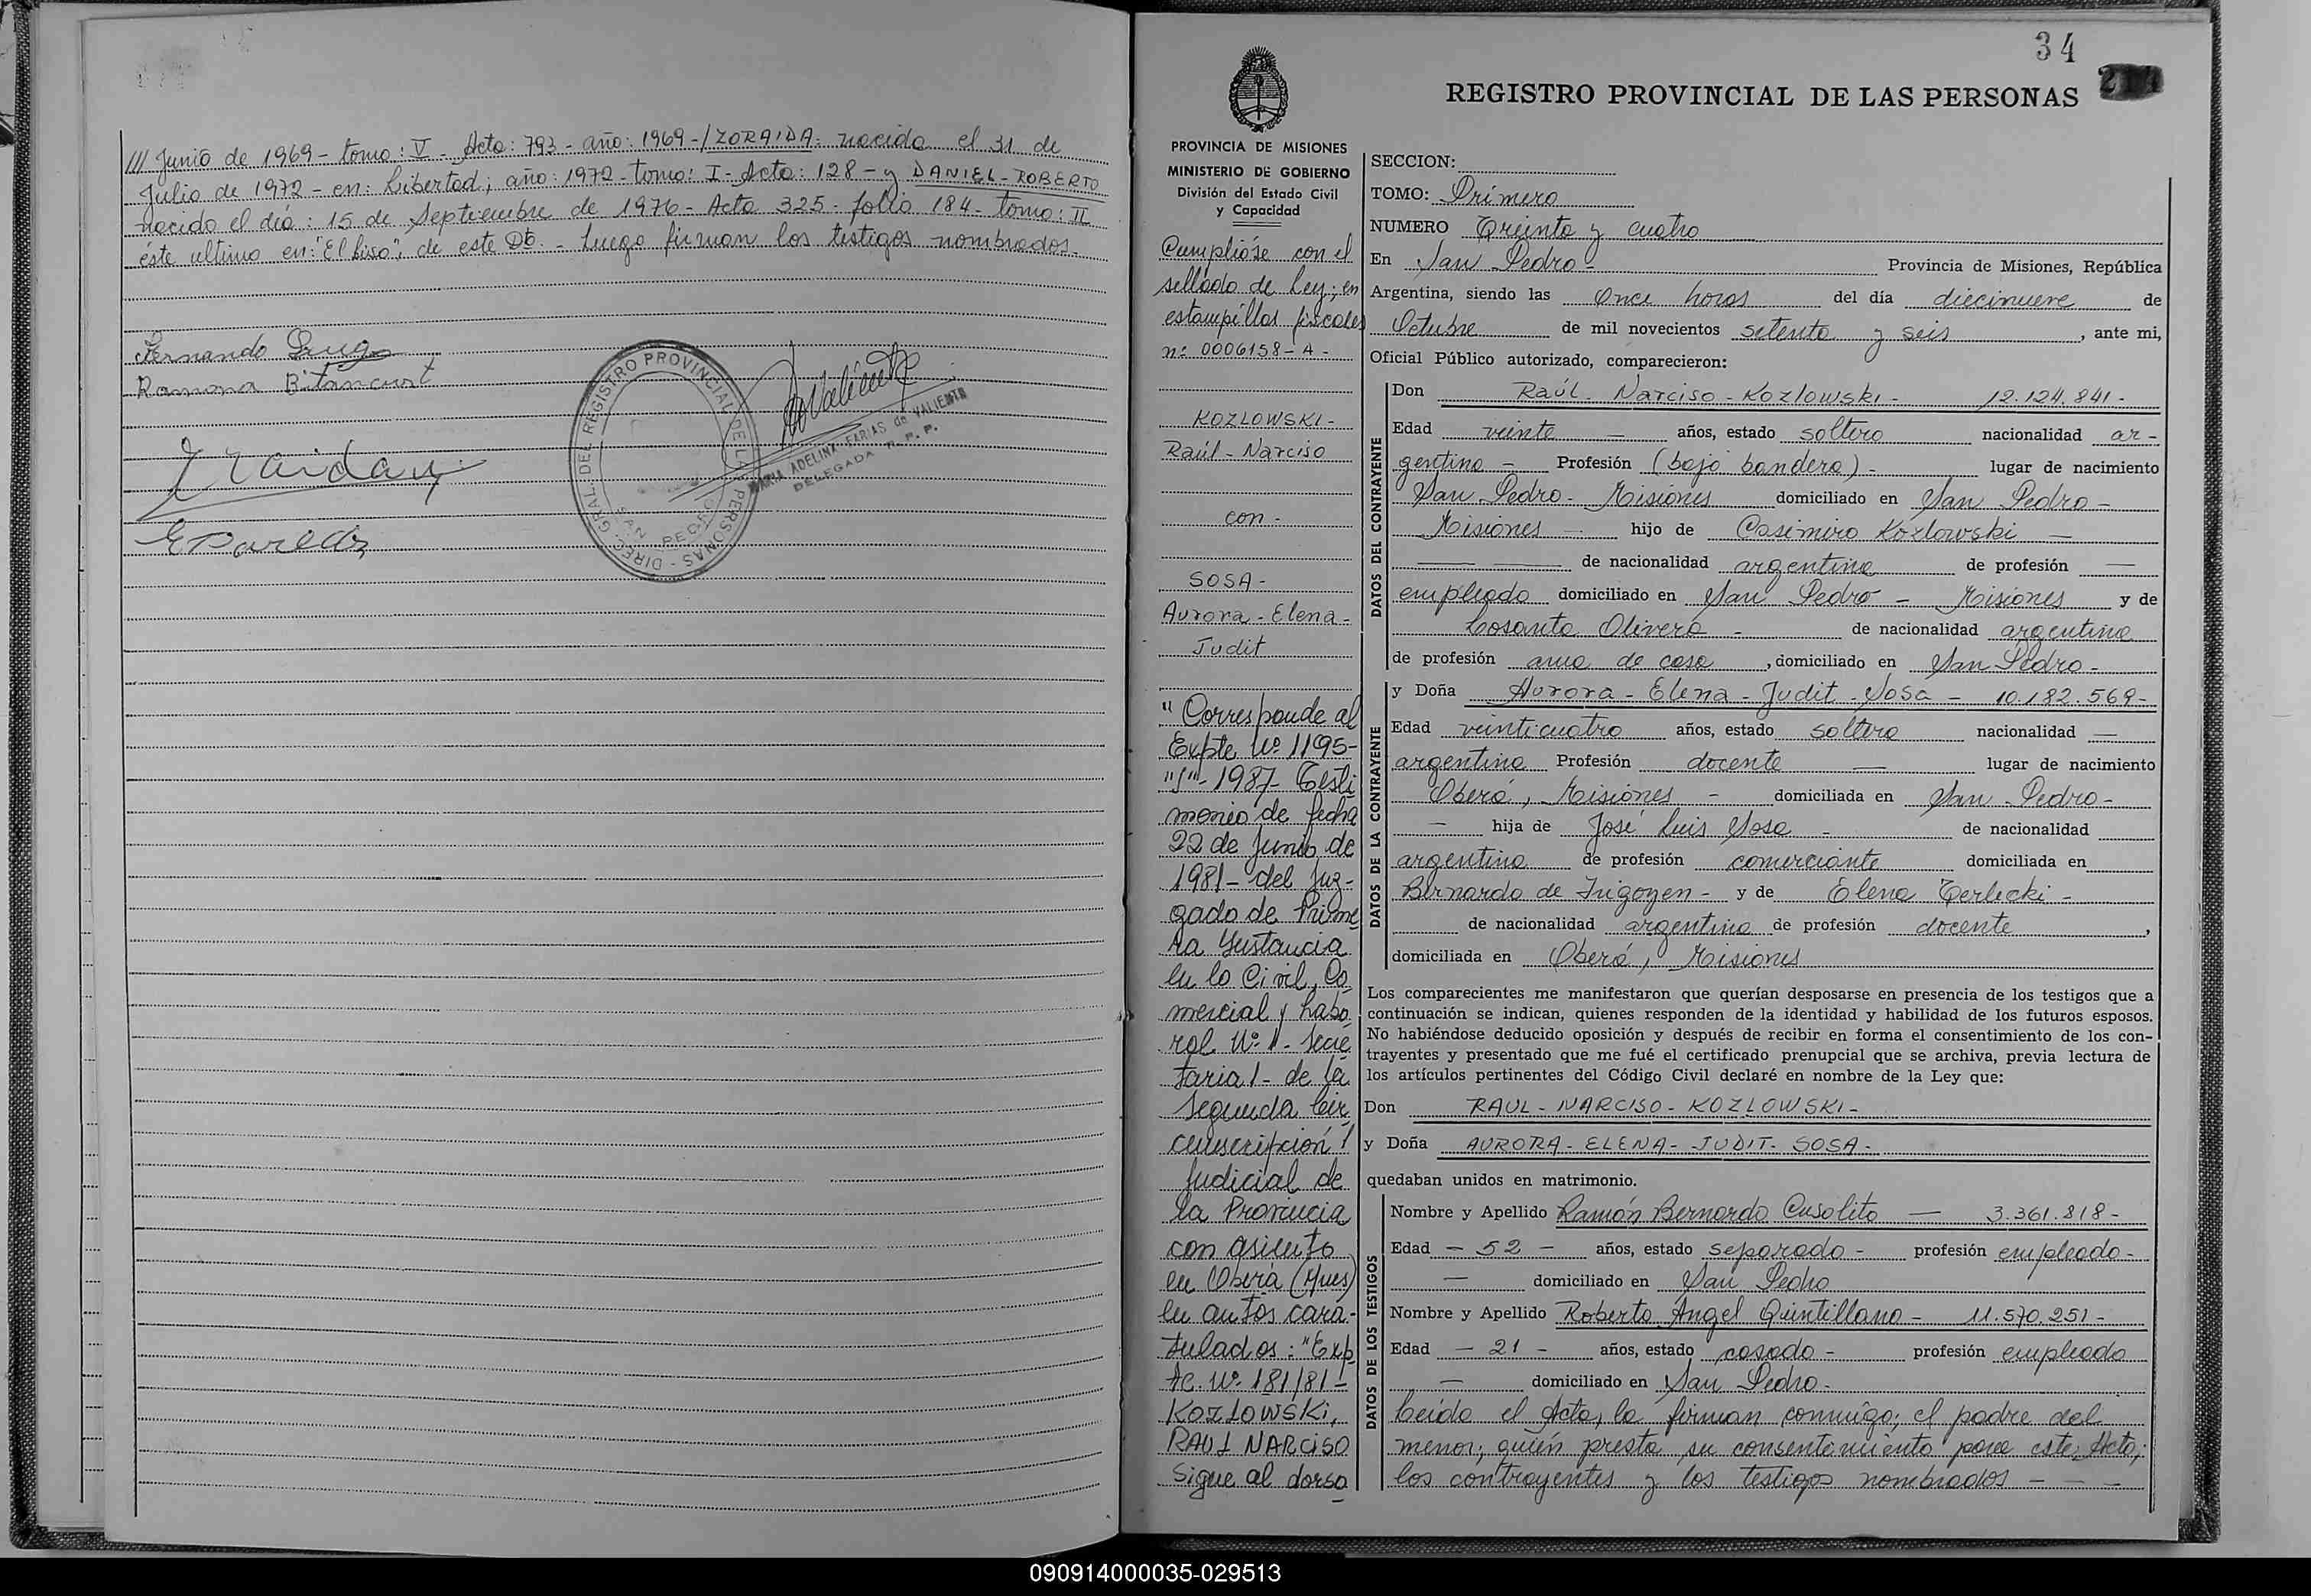 /// Junio de 1969 - tomo: V - Acta: 793 - año: 1969 - / ZORAIDA: nacida el 31 de
Julio de 1972 - en: Libertad; año: 1972 - tomo: I - Acta: 128 - y DANIEL - ROBERTO
nacido el día: 15 de Septiembre de 1976 - Acta 325 - folio 184 - tomo: II
éste ultimo en: "El Liso"; de este Dto. - Luego firman los testigos nombrados -
Fernando Lugo
Ramona Bitancurt
DIREC. GRAL. DEL REGISTRO PROVINCIAL DE LAS PERSONAS -
SAN PEDRO
MARIA ADELINA FARIAS de VALIENTE
DELEGADA R. P. P.
34
REGISTRO PROVINCIAL DE LAS PERSONAS
PROVINCIA DE MISIONES
MINISTERIO DE GOBIERNO
División del Estado Civil
y Capacidad
Cumplióse con el
sellado de Ley; en
estampillas fiscales
n: 0006158 - A -
KOZLOWSKI -
Raúl - Narciso
con -
SOSA -
Aurora - Elena -
Judit
"Corresponde al
Expte Nº 1195-
"S" - 1987 - Testi
monio de fecha
22 de Junio de
1981 - del Juz-
gado de Prime
ra Instancia
en lo Civil, Co
mercial y Labo
ral Nº 1 - Secre
taria 1 - de la
Segunda Cir
cunscripción
Judicial de
la Provincia
con asiento
en Oberá (Mnes)
en autos cara-
tulados: "Exp
te. Nº 181/81 -
KOZLOWSKI,
RAUL NARCISO
Sigue al dorso
SECCION:
TOMO: Primero
NUMERO Treinta y cuatro
En San Pedro - Provincia de Misiones, República
Argentina, siendo las Once horas del día diecinueve de
Octubre de mil novecientos setenta y seis, ante mi,
Oficial Público autorizado, comparecieron:
DATOS DEL CONTRAYENTE
Don Raúl - Narciso - Kozlowski - 12.124.841 -
Edad veinte - años, estado soltero nacionalidad ar -
gentina - Profesión (bajo bandera) - lugar de nacimiento
San Pedro - Misiones domiciliado en San Pedro -
Misiones - hijo de Casimiro Kozlowski -
de nacionalidad argentina de profesión -
empleado domiciliado en San Pedro - Misiones y de
Losanta Olivera - de nacionalidad argentina
de profesión ama de casa, domiciliado en San Pedro -
DATOS DE LA CONTRAYENTE
y Doña Aurora - Elena - Judit - Sosa - 10.182.569 -
Edad veinticuatro años, estado soltera nacionalidad -
argentina Profesión docente - lugar de nacimiento
Oberá, Misiones - domiciliada en San Pedro -
- hija de José Luis Sosa - de nacionalidad
argentina de profesión comerciante domiciliada en
Bernardo de Irigoyen - y de Elena Terlecki -
de nacionalidad argentina de profesión docente,
domiciliada en Oberá, Misiones
Los comparecientes me manifestaron que querían desposarse en presencia de los testigos que a
continuación se indican, quienes responden de la identidad y habilidad de los futuros esposos.
No habiéndose deducido oposición y después de recibir en forma el consentimiento de los con-
trayentes y presentado que me fué el certificado prenupcial que se archiva, previa lectura de
los artículos pertinentes del Código Civil declaré en nombre de la Ley que:
Don RAUL - NARCISO - KOZLOWSKI -
y Doña AURORA - ELENA - JUDIT - SOSA -
quedaban unidos en matrimonio.
DATOS DE LOS TESTIGOS
Nombre y Apellido Ramón Bernardo Cusolito - 3.361.818 -
Edad - 52 - años, estado separado - profesión empleado -
- domiciliado en San Pedro
Nombre y Apellido Roberto Angel Quintillano - 11.570.251 -
Edad - 21 - años, estado casado - profesión empleado
- domiciliado en San Pedro -
Leída el Acta, la firman conmigo; el padre del
menor; quién presta su consentimiento para este Acto;
los contrayentes y los testigos nombrados - - -
090914000035-029513